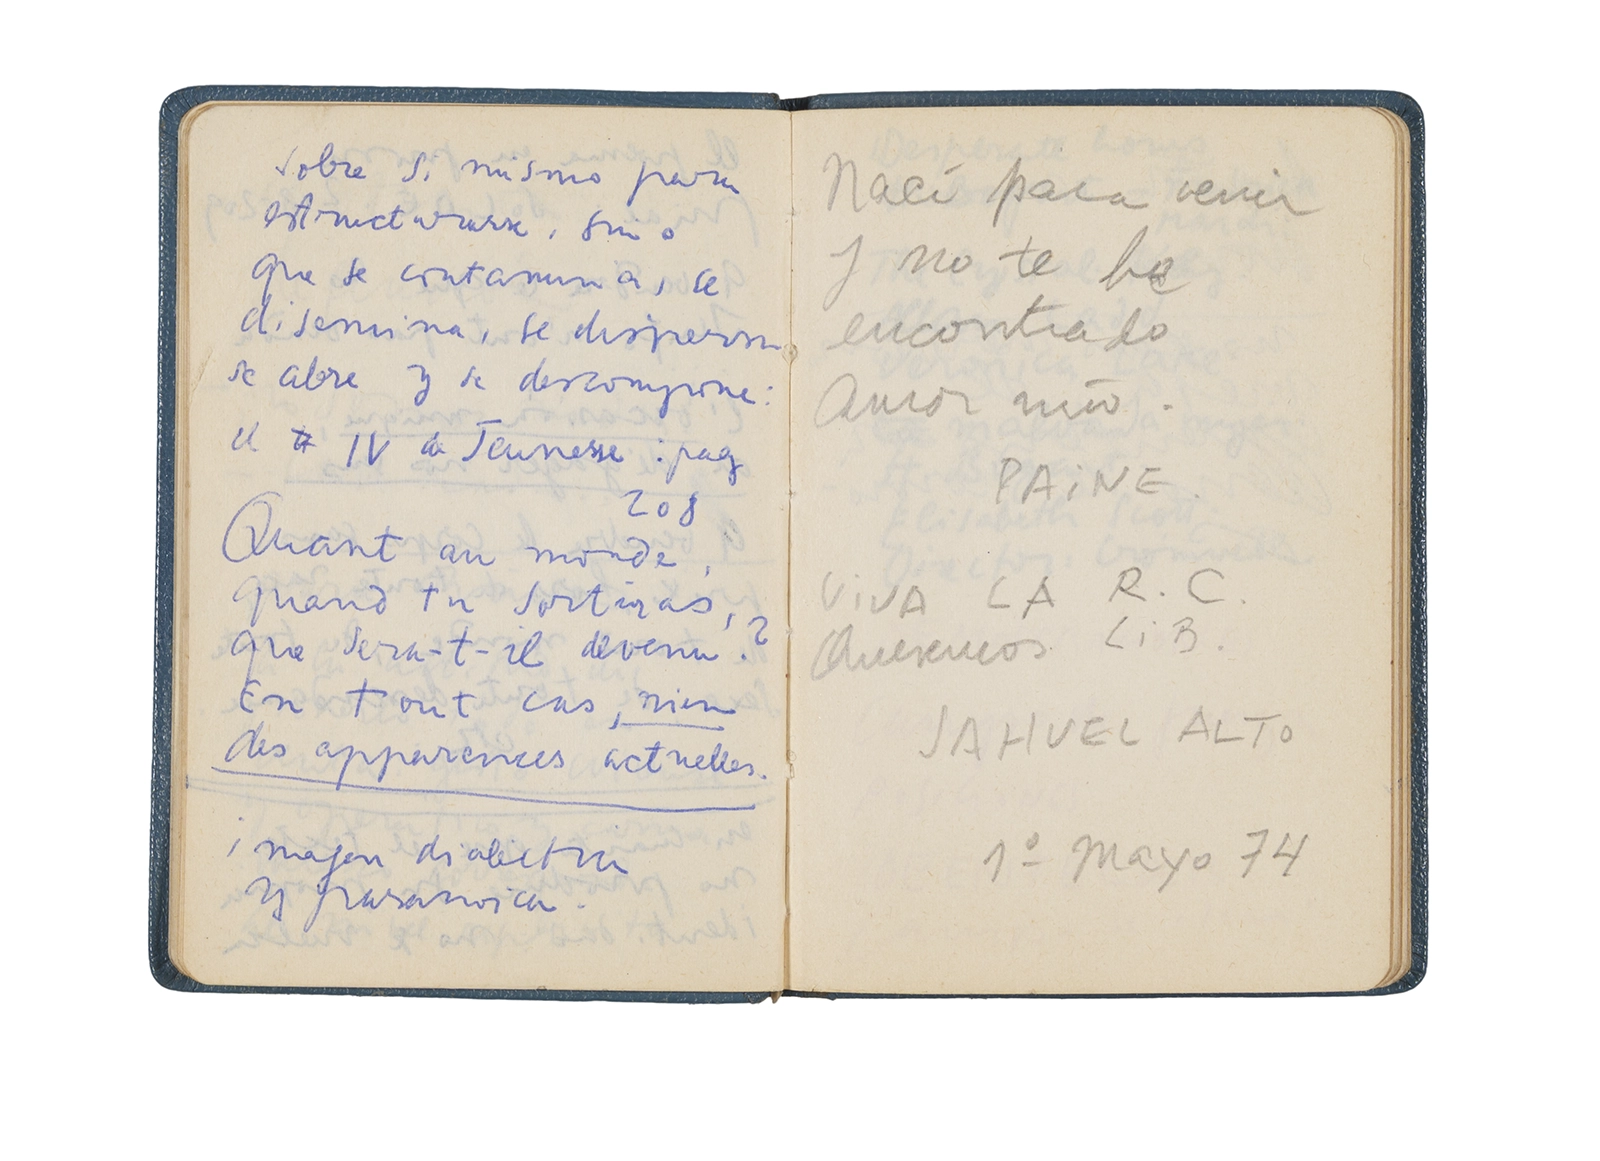 sobre si mismo para
estructurarse, sino
que se contamina, se
disemina, se dispersa
se abre y se descompone:
el # IV de Jeunesse : pag
208
Quant au monde,
quand tu sortiras,
que sera-t-il devenu?
En tout cas, rien
des apparences actuelles.
imagen dialectica
y paranoica.
Nací para venir
y no te he
encontrado
amor mío.
PAiNE.
ViVA LA R.C.
Queremos LiB.
JAHUEL ALTO
1º Mayo 74